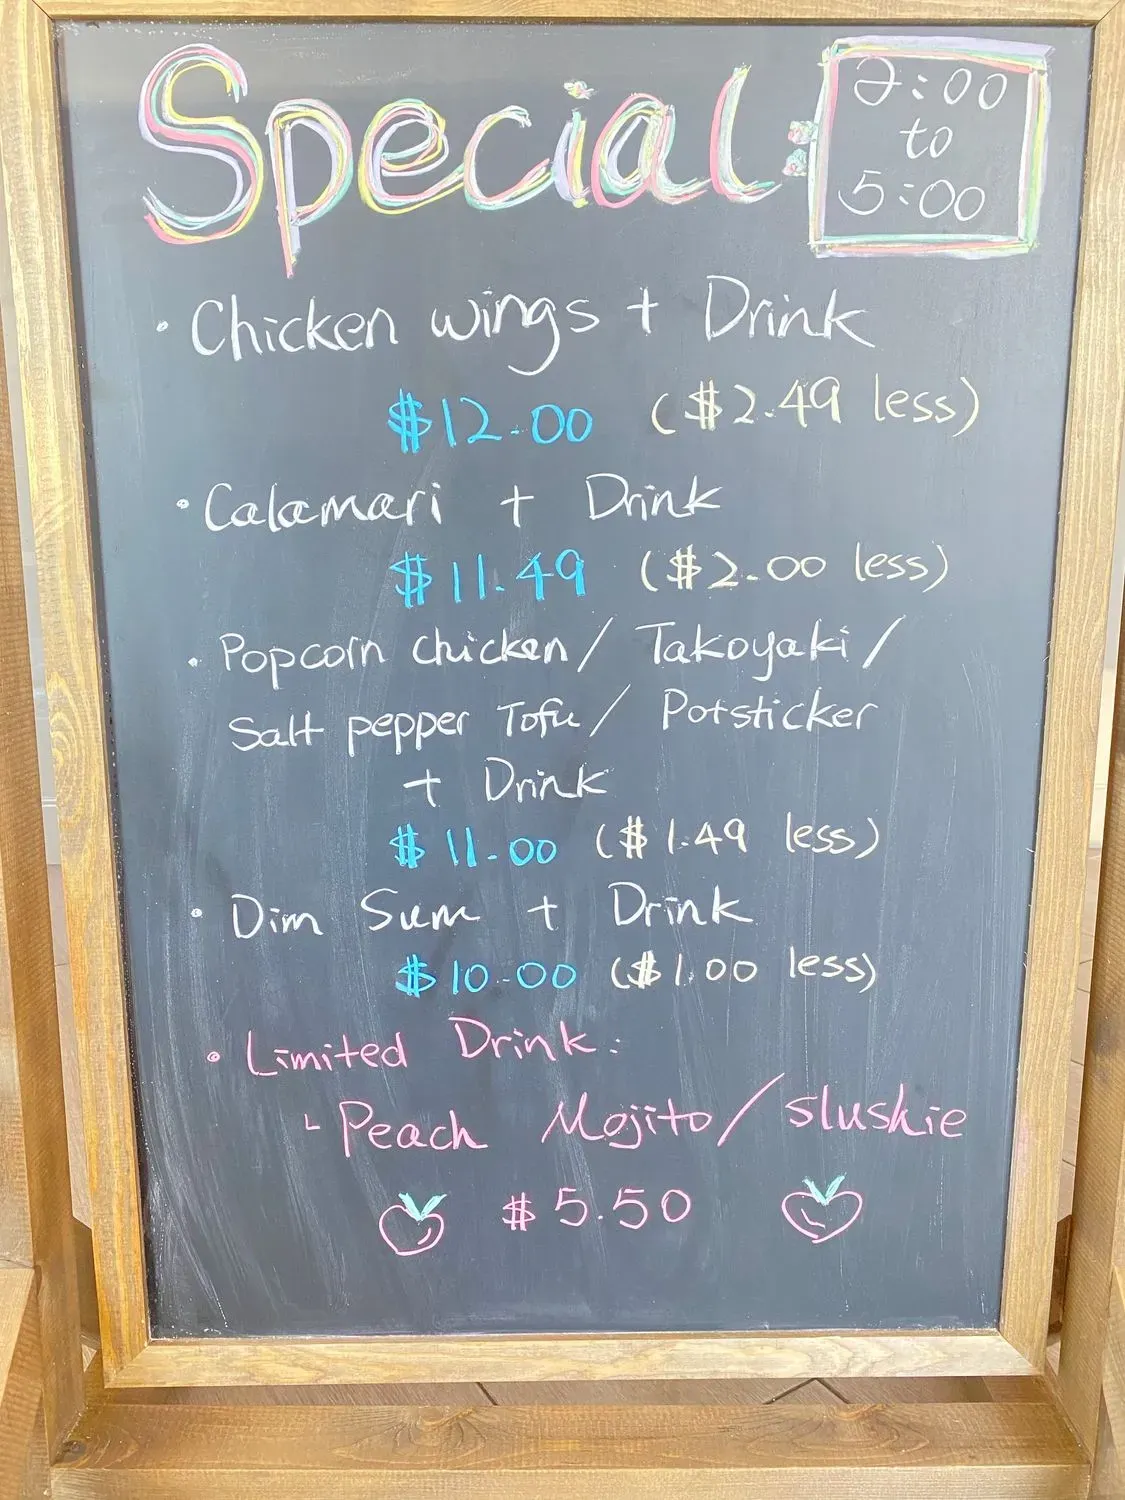 Special: 2:00
to
5:00
· Chicken wings + Drink
$12.00 ($2.49 less)
· Calamari + Drink
$11.49 ($2.00 less)
· Popcorn chicken / Takoyaki /
Salt pepper Tofu / Potsticker
+ Drink
$11.00 ($1.49 less)
· Dim Sum + Drink
$10.00 ($1.00 less)
· Limited Drink:
└ Peach Mojito / slushie
$5.50